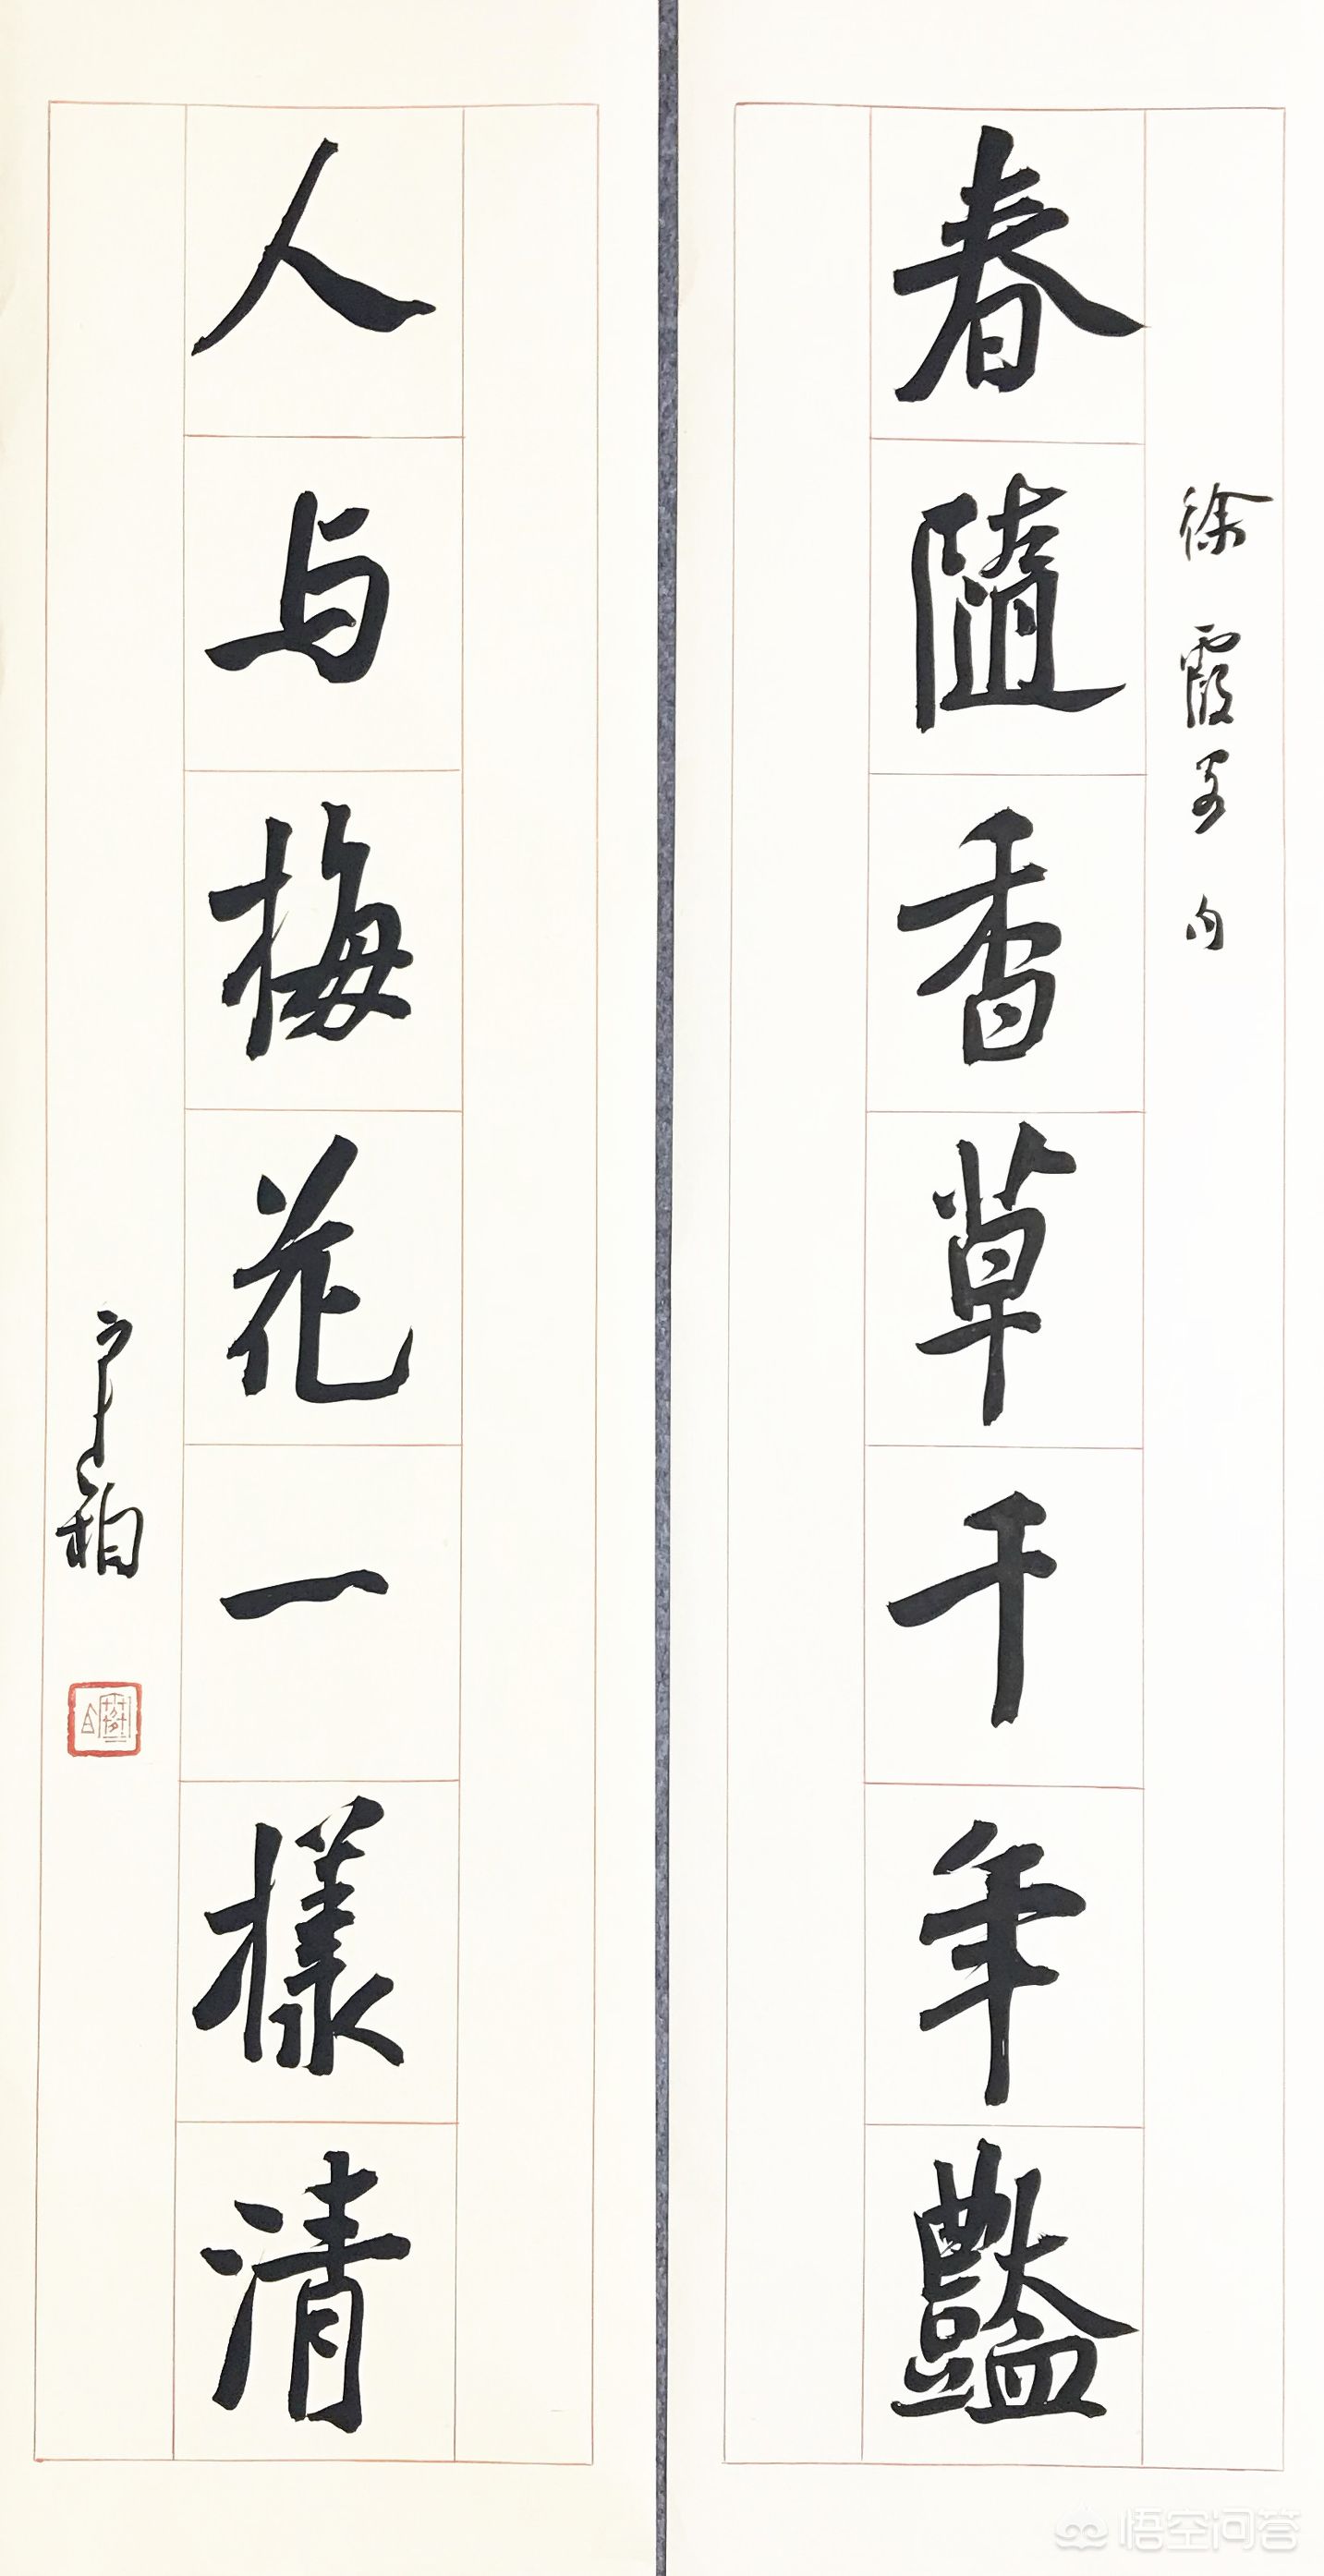 徐霞客句
春随香草千年豔
人与梅花一樣清
悟空问答